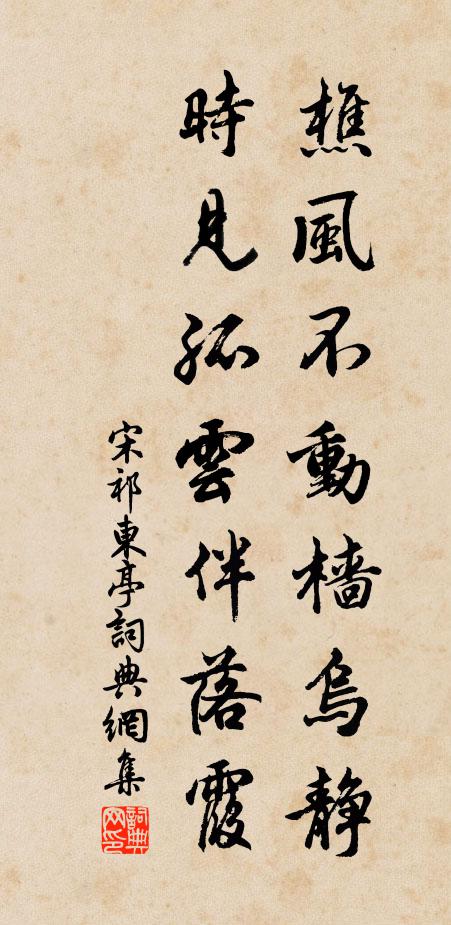 樵風不動檣烏靜
時見孤雲伴落霞
宋祁東亭詞典網集
詞典网印